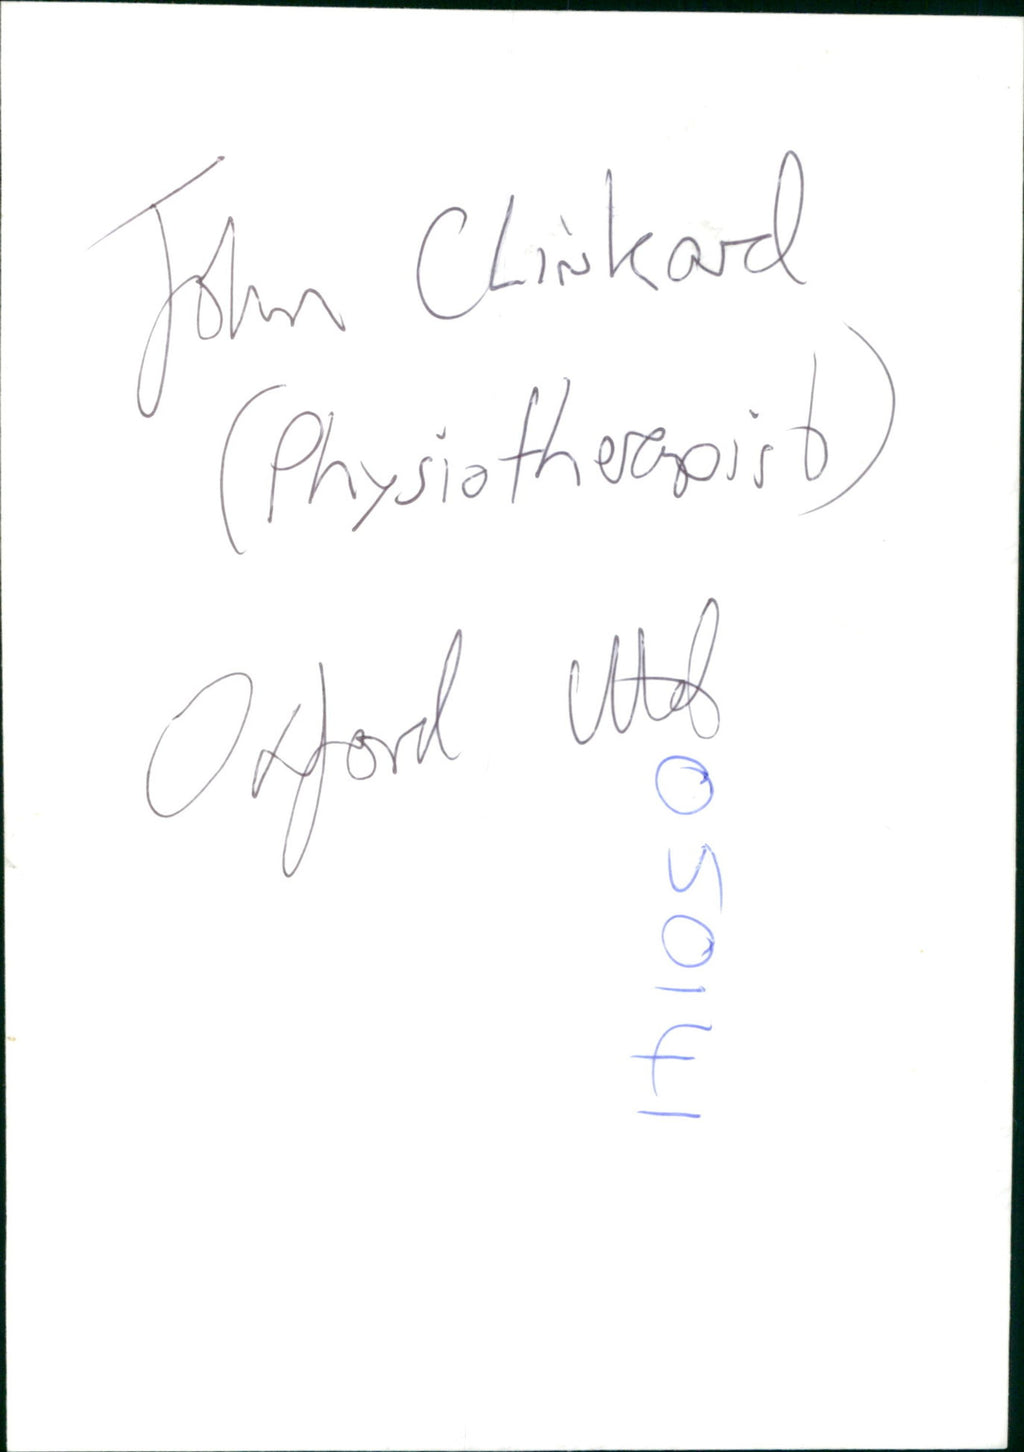 John Clinkard
(Physiotherapist)
Oxford Utd
050141